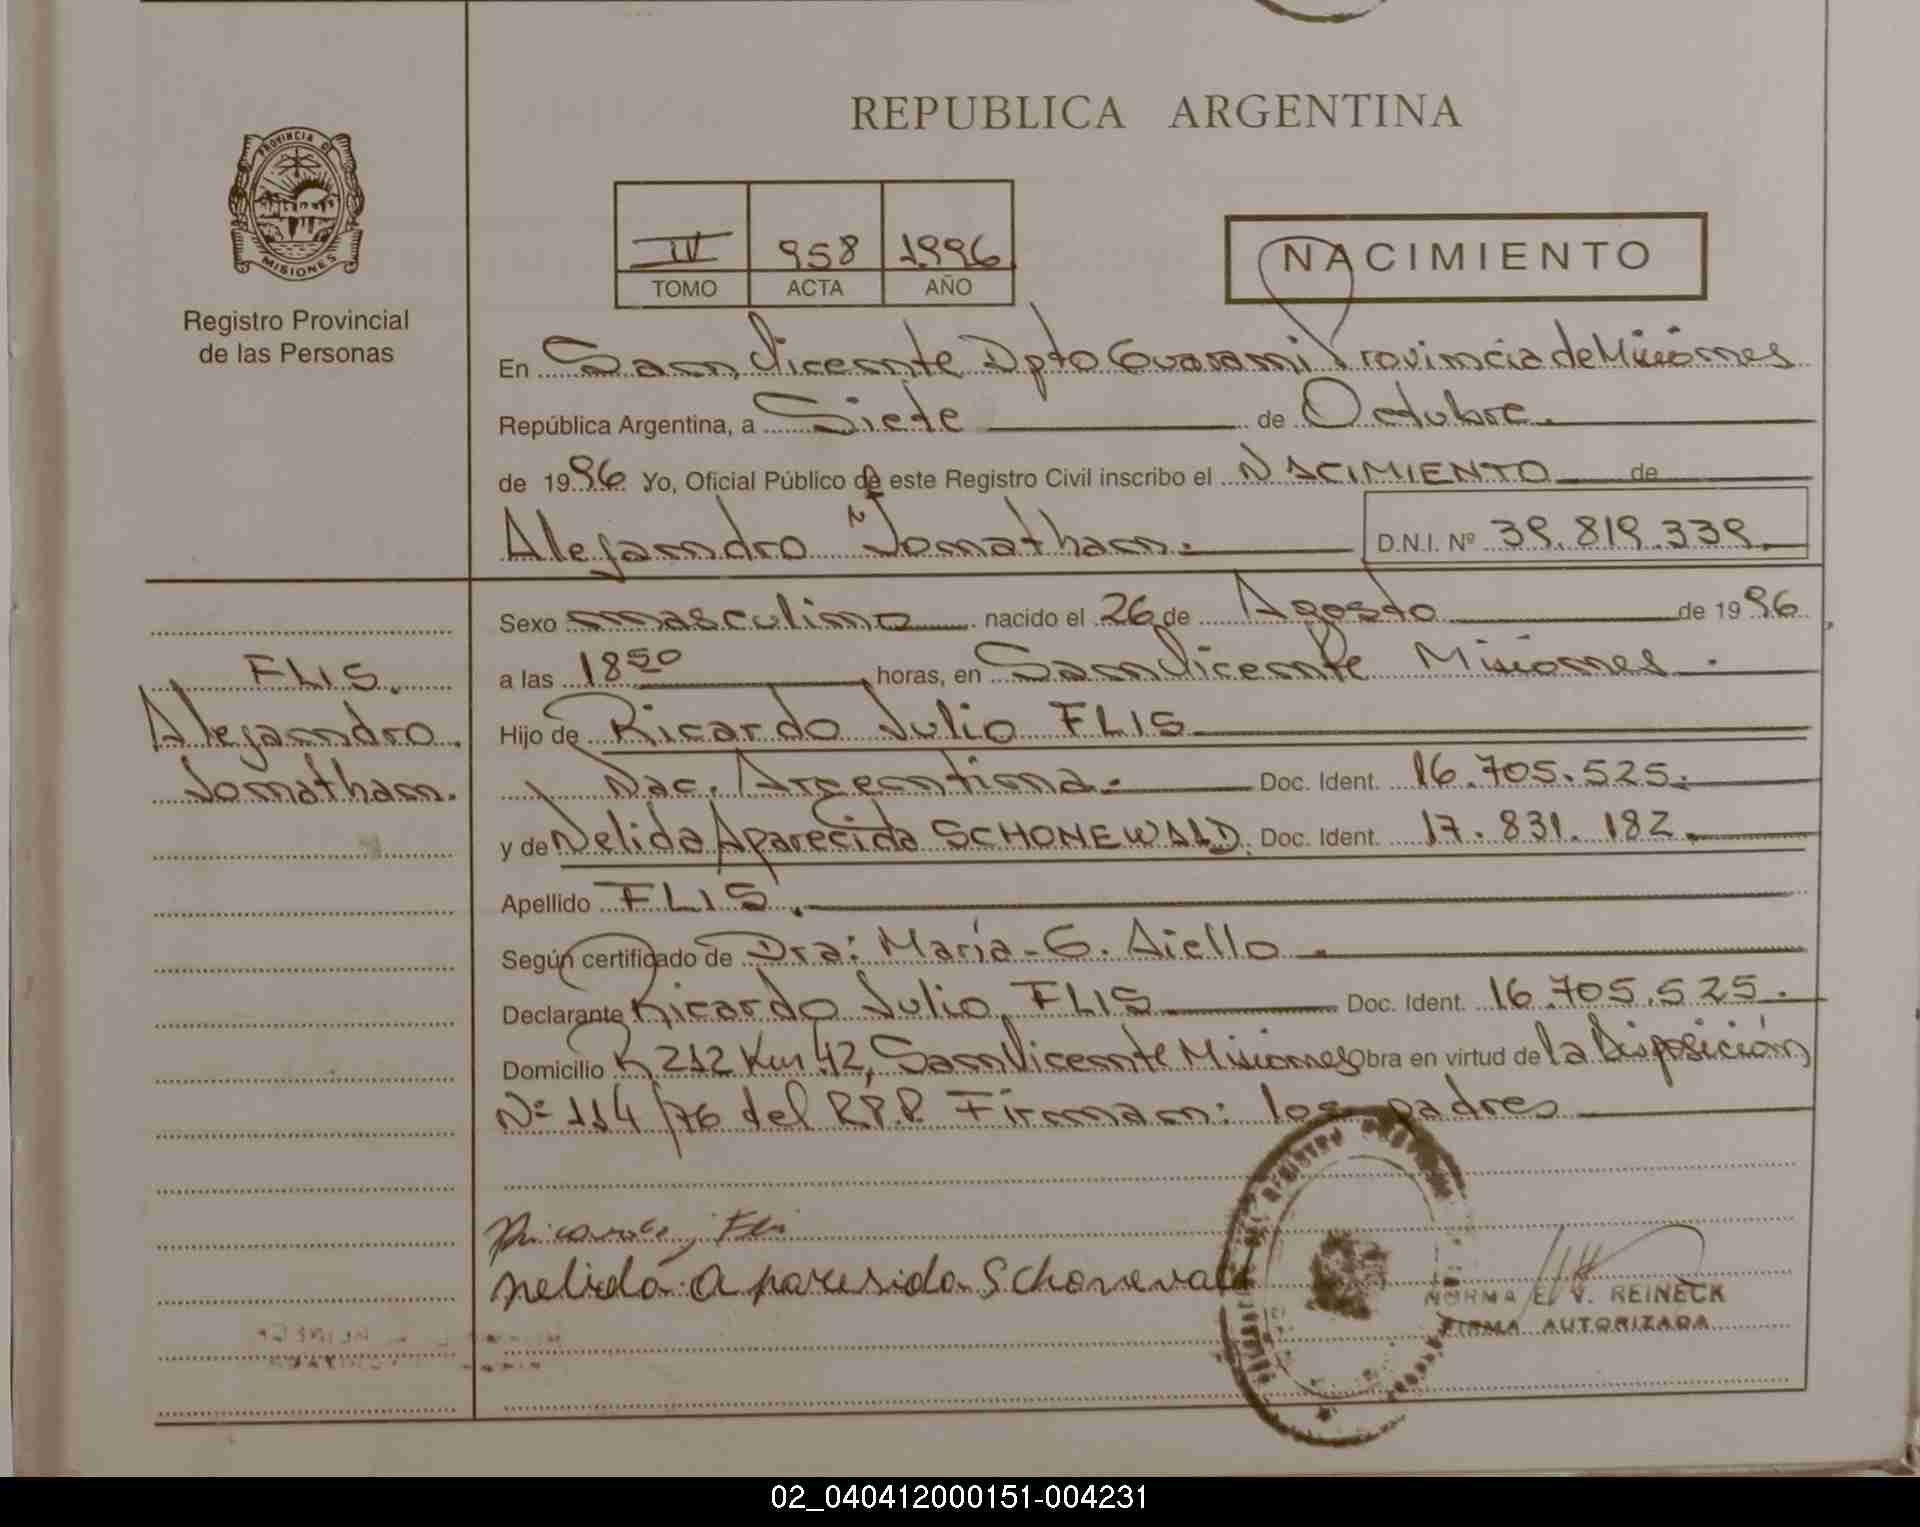 PROVINCIA DE
MISIONES
Registro Provincial
de las Personas
REPUBLICA ARGENTINA
IV 958 1996
TOMO ACTA AÑO
NACIMIENTO
En San Vicente Dpto Guarani Provincia de Misiones
República Argentina, a Siete de Octubre.
de 1996 Yo, Oficial Público de este Registro Civil inscribo el NACIMIENTO de
Alejandro Jonathan. D.N.I. Nº 39.819.339.
Sexo masculino nacido el 26 de Agosto de 1996
a las 18 50 horas, en San Vicente Misiones.
Hijo de Ricardo Julio FLIS
Nac. Argentina. Doc. Ident. 16.705.525.
y de Nelida Aparecida SCHONEWALD. Doc. Ident. 17.831.182.
Apellido FLIS.
Según certificado de Dra: María G. Aiello.
Declarante Ricardo Julio FLIS Doc. Ident. 16.705.525.
Domicilio R 212 Km 42, San Vicente Misiones Obra en virtud de la Disposición
Nº 114/76 del R.P.P. Firman: los padres
FLIS.
Alejandro
Jonathan.
nelida aparesida Schonevald
NORMA E. V. REINECK
FIRMA AUTORIZADA
02_040412000151-004231